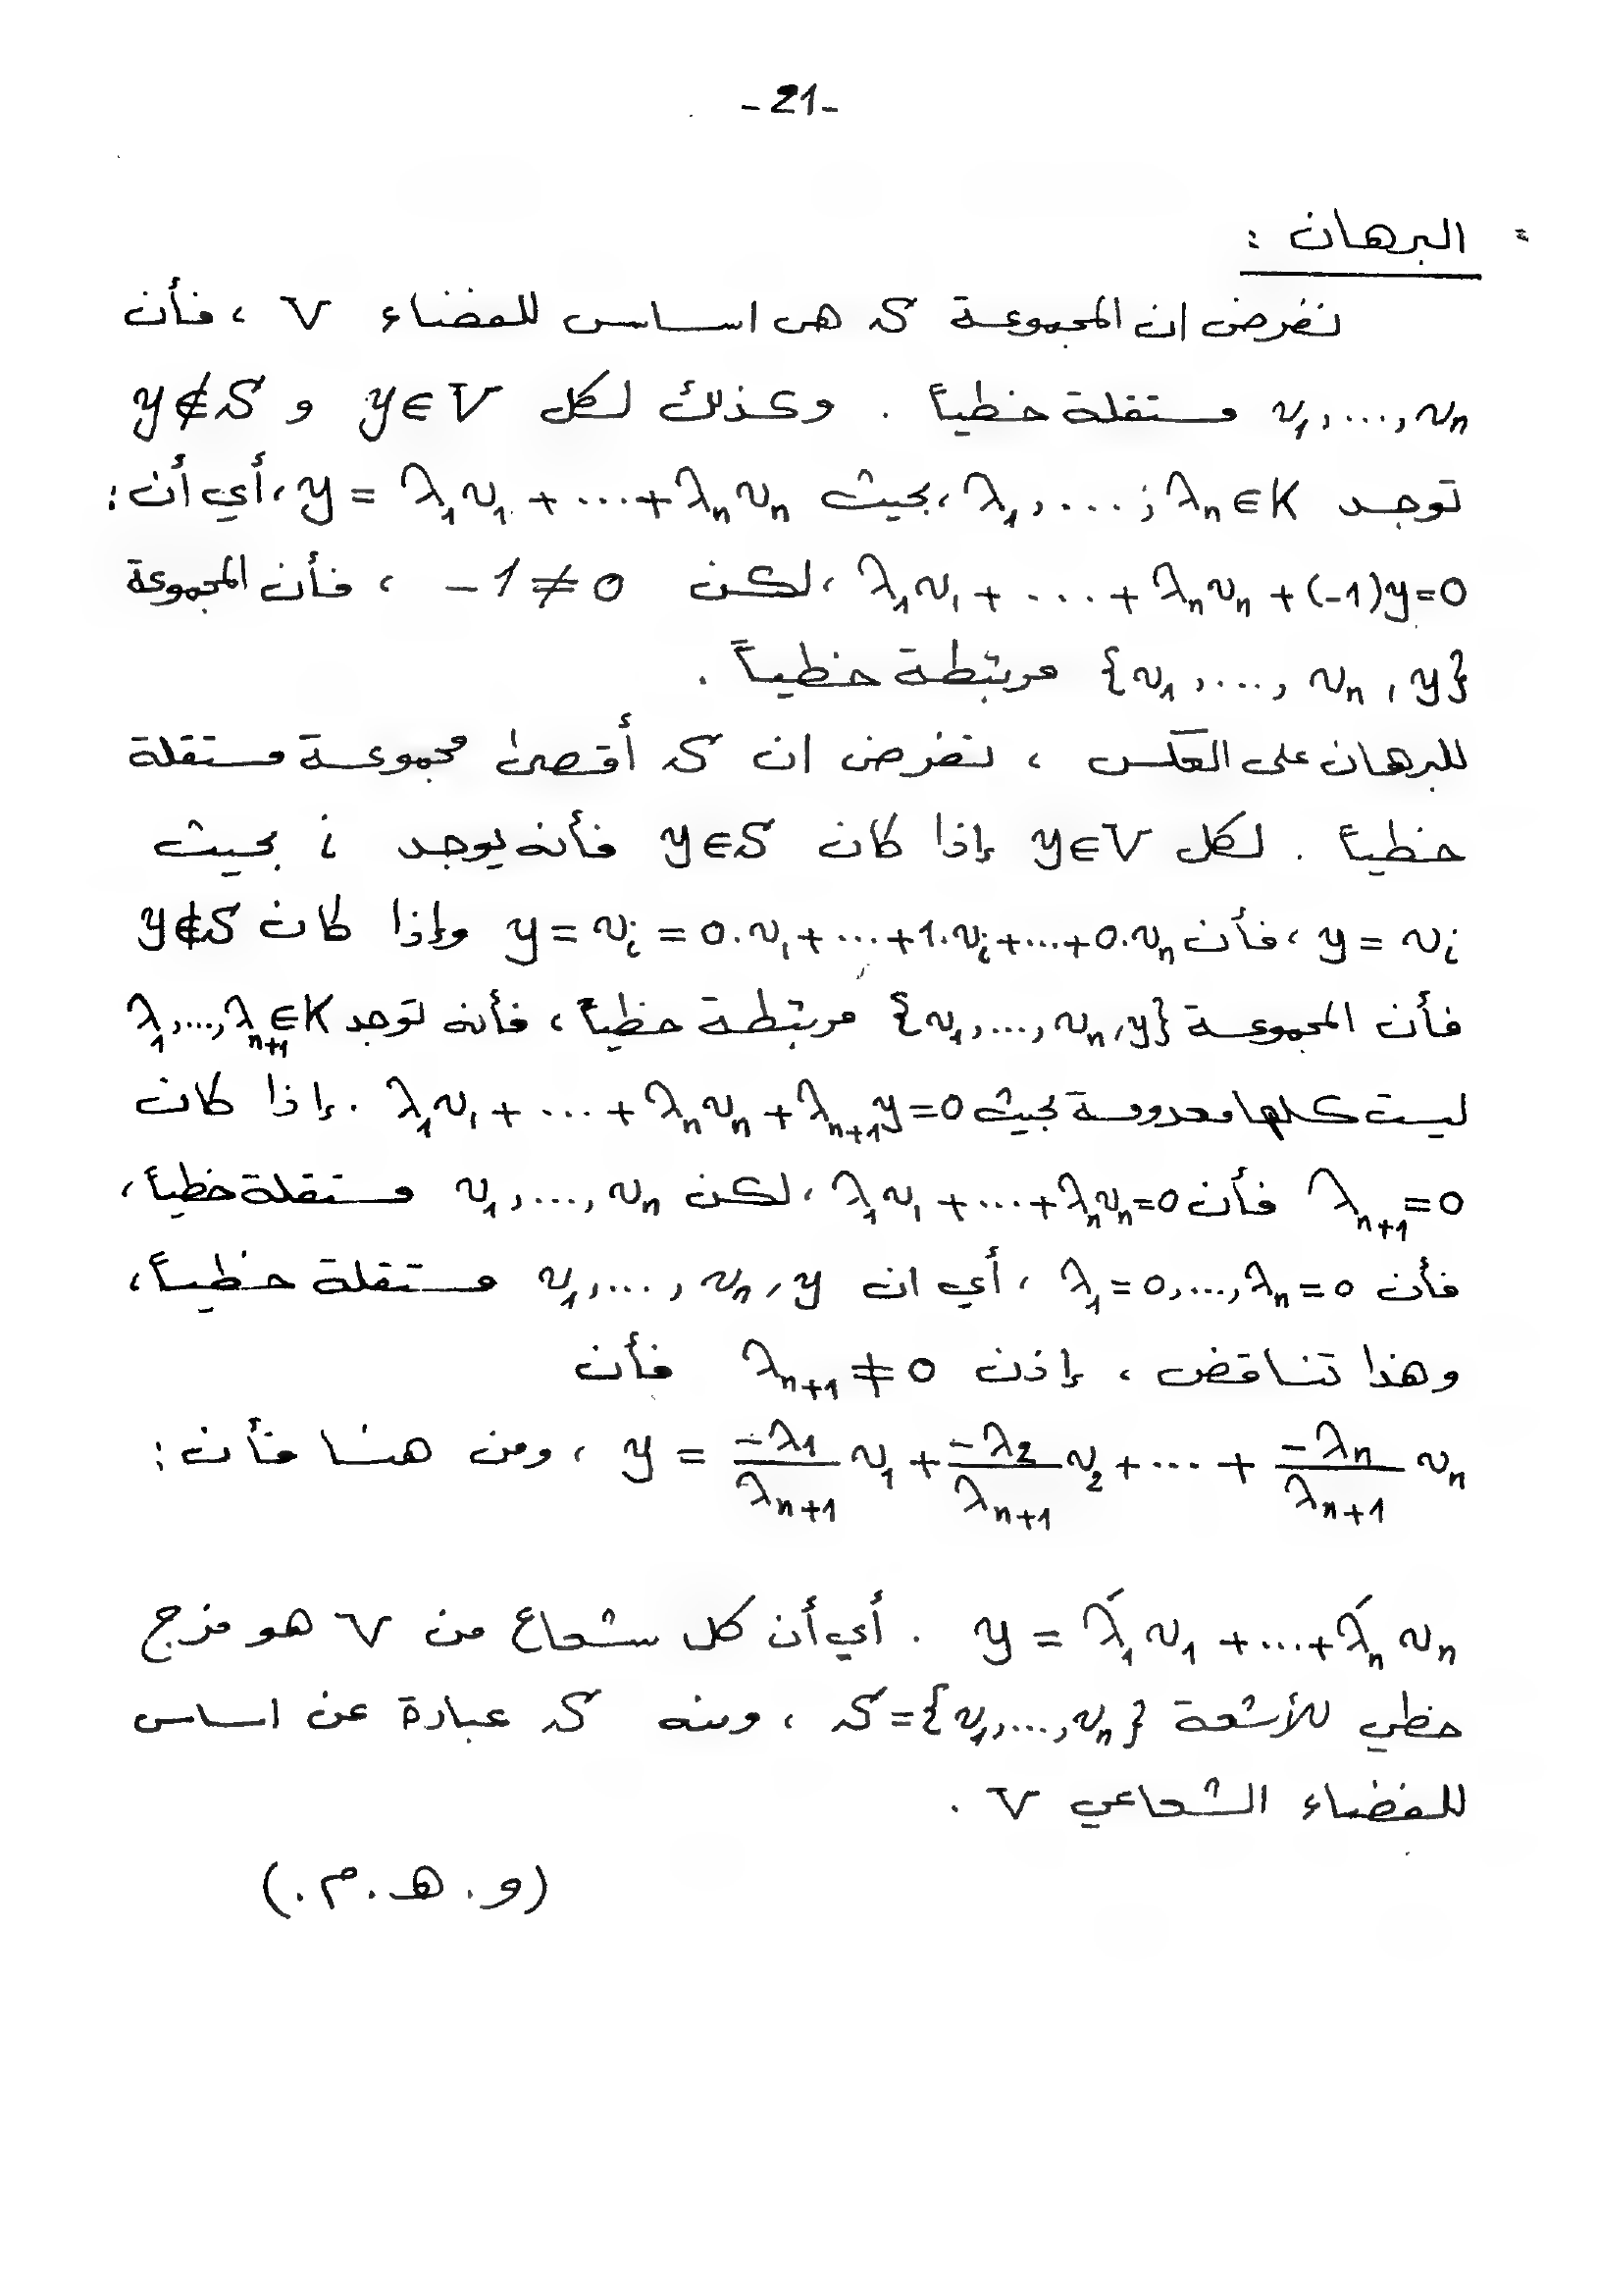 -21-
البرهان :
نفرض ان المجموعة S هي اساس للفضاء V ، فأن
v₁,...,vₙ مستقلة خطياً . وكذلك لكل y∈V و y∉S
توجد λ₁,...;λₙ∈K ،بحيث y = λ₁v₁ + ... + λₙvₙ ،أي أن :
λ₁v₁ + .... + λₙvₙ + (-1)y=0 ،لكن -1≠0 ، فأن المجموعة
{v₁,..., vₙ, y} مرتبطة خطياً .
للبرهان على العكس ، نفرض ان S أقصى مجموعة مستقلة
خطياً . لكل y∈V إذا كان y∈S فأنه يوجد i بحيث
y = vᵢ ،فأن y = vᵢ = 0.v₁+...+1.vᵢ+...+0.vₙ وإذا كان y∉S
فأن المجموعة {v₁,...,vₙ,y} مرتبطة خطياً ، فأنه توجد λ₁,...,λₙ₊₁∈K
ليست كلها معدومة بحيث λ₁v₁ + ... + λₙvₙ + λₙ₊₁y=0 . إذا كان
λₙ₊₁=0 فأن λ₁v₁ + ... + λₙvₙ=0 ،لكن v₁,...,vₙ مستقلة خطياً ،
فأن λ₁=0,...,λₙ=0 ، أي ان v₁,..., vₙ, y مستقلة خطياً ،
وهذا تناقض ، إذن λₙ₊₁≠0 فأن
y = (-λ₁/λₙ₊₁)v₁ + (-λ₂/λₙ₊₁)v₂ + ... + (-λₙ/λₙ₊₁)vₙ ، ومن هنا فأن :
y = λ́₁v₁ + ... + λ́ₙvₙ . أي أن كل شعاع من V هو مزج
خطي للأشعة S={v₁,...,vₙ} ، ومنه S عبارة عن اساس
للفضاء الشعاعي V .
(و . هـ . م .)